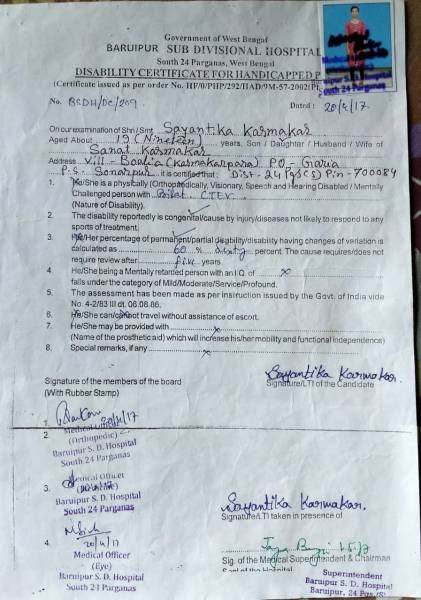 Government of West Bengal
BARUIPUR SUB DIVISIONAL HOSPITAL
South 24 Parganas, West Bengal
DISABILITY CERTIFICATE FOR HANDICAPPED P
(Certificate issued as per order No. HF/0/PHP/292/HAD/9M-57-2002(Pt.
No. BSDH/DC/209 Dated : 20/4/17
On our examination of Shri / Smt. Sayantika Karmakar
Aged About 19 (Nineteen) years, Son / Daughter / Husband / Wife of
Sanat Karmakar
Address Vill- Boalia (Karmakarpara) P.O - Garia
P.S. Sonarpur it is certified that : Dist- 24 Pgs (S) Pin- 700084
1. He/She is a physically (Orthopedically, Visionary, Speech and Hearing Disabled / Mentally
Challenged person with CTEV
(Nature of Disability).
2. The disability reportedly is congenital/cause by injury/diseases not likely to respond to any
sports of treatment.
3. He/Her percentage of permanent/partial disability/disability having changes of variation is
calculated as 60 % percent. The cause requires/does not
require review after five years.
4. He/She being a Mentally retarded person with an I.Q. of x
falls under the category of Mild/Moderate/Service/Profound.
5. The assessment has been made as per instruction issued by the Govt. of India vide
No. 4-2/83 III dt. 06.08.86.
6. He/She can/cannot travel without assistance of escort.
7. He/She may be provided with x
(Name of the prosthetic aid) which will increase his/her mobility and functional independence)
8. Special remarks, if any x
Signature of the members of the board
(With Rubber Stamp)
Sayantika Karmakar.
Signature/LTI of the Candidate
1. 20/4/17
2. (Orthopedic)
Baruipur S. D. Hospital
South 24 Parganas
3. Medical Officer
Baruipur S. D. Hospital
South 24 Parganas
Sayantika Karmakar.
Signature/LTI taken in presence of
4. 20/4/17
Medical Officer
(Eye)
Baruipur S. D. Hospital
South 24 Parganas
Sig. of the Medical Superintendent & Chairman
Superintendent
Baruipur S. D. Hospital
Baruipur, 24 Pgs (S)